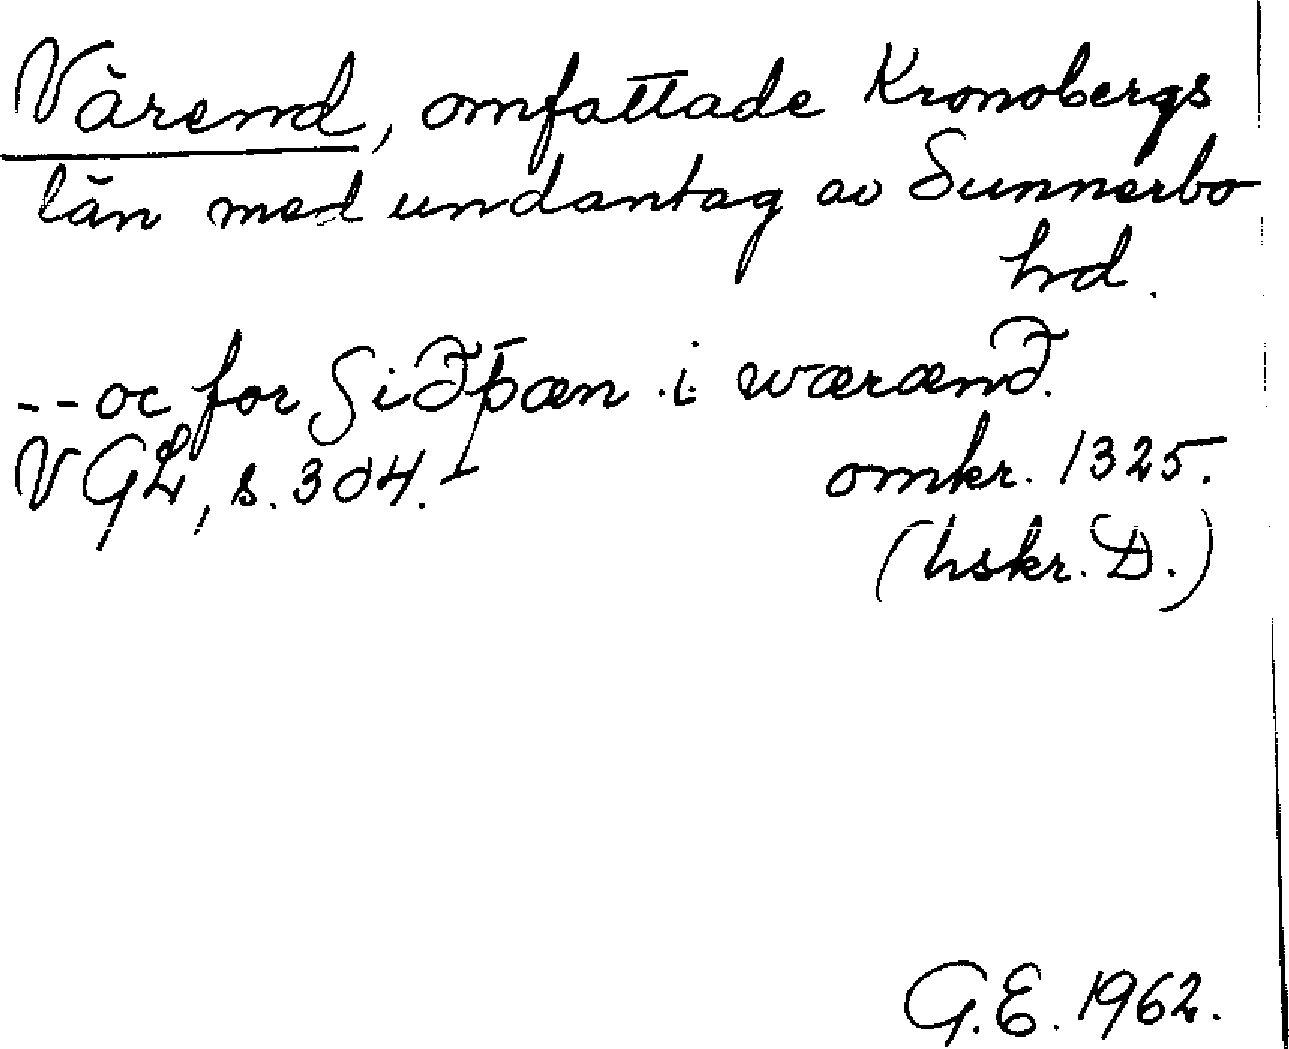 Värend, omfattade Kronobergs
län med undantag av Sunnerbo
hd.
-- oc for siðþæn i wærænð.
VGL, s. 304. omkr. 1325.
(hskr. D.)
G.E. 1962.